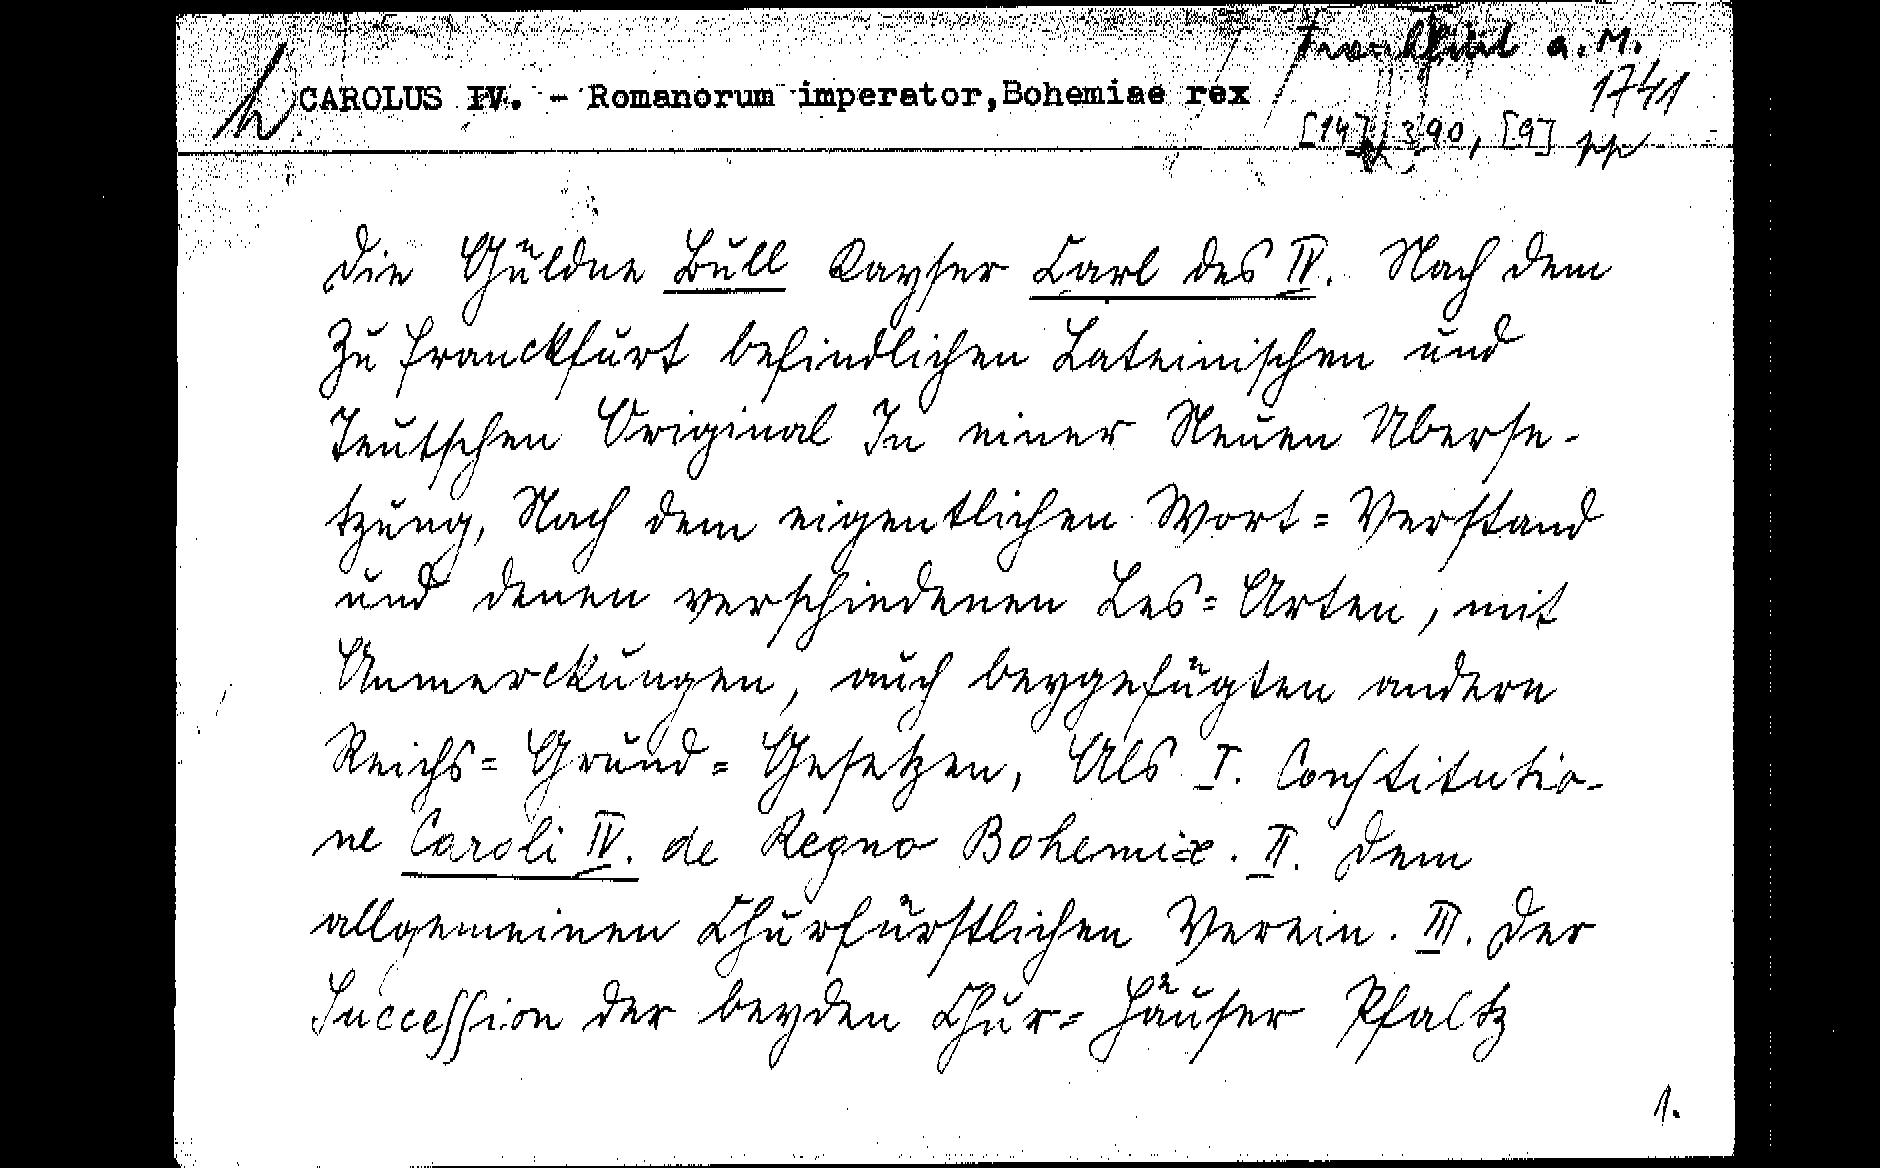 Frankfurt a. M.
1741
CAROLUS IV. - Romanorum imperator, Bohemiae rex
[14], 390, [9] pp
Die Güldne Bull Kayser Carl des IV. Nach dem
Zu Franckfurt befindlichen Lateinischen und
Teutschen Original In einer Neuen Überse-
tzung, Nach dem eigentlichen Wort=Verstand
und denen verschiedenen Les=Arten, mit
Anmerckungen, auch beygefügten andern
Reichs=Grund=Gesetzen, Als I. Constitutio-
ne Caroli IV. de Regno Bohemiæ. II. Dem
allgemeinen Churfürstlichen Verein. III. Der
Succession der beyden Chur=Häuser Pfaltz
1.